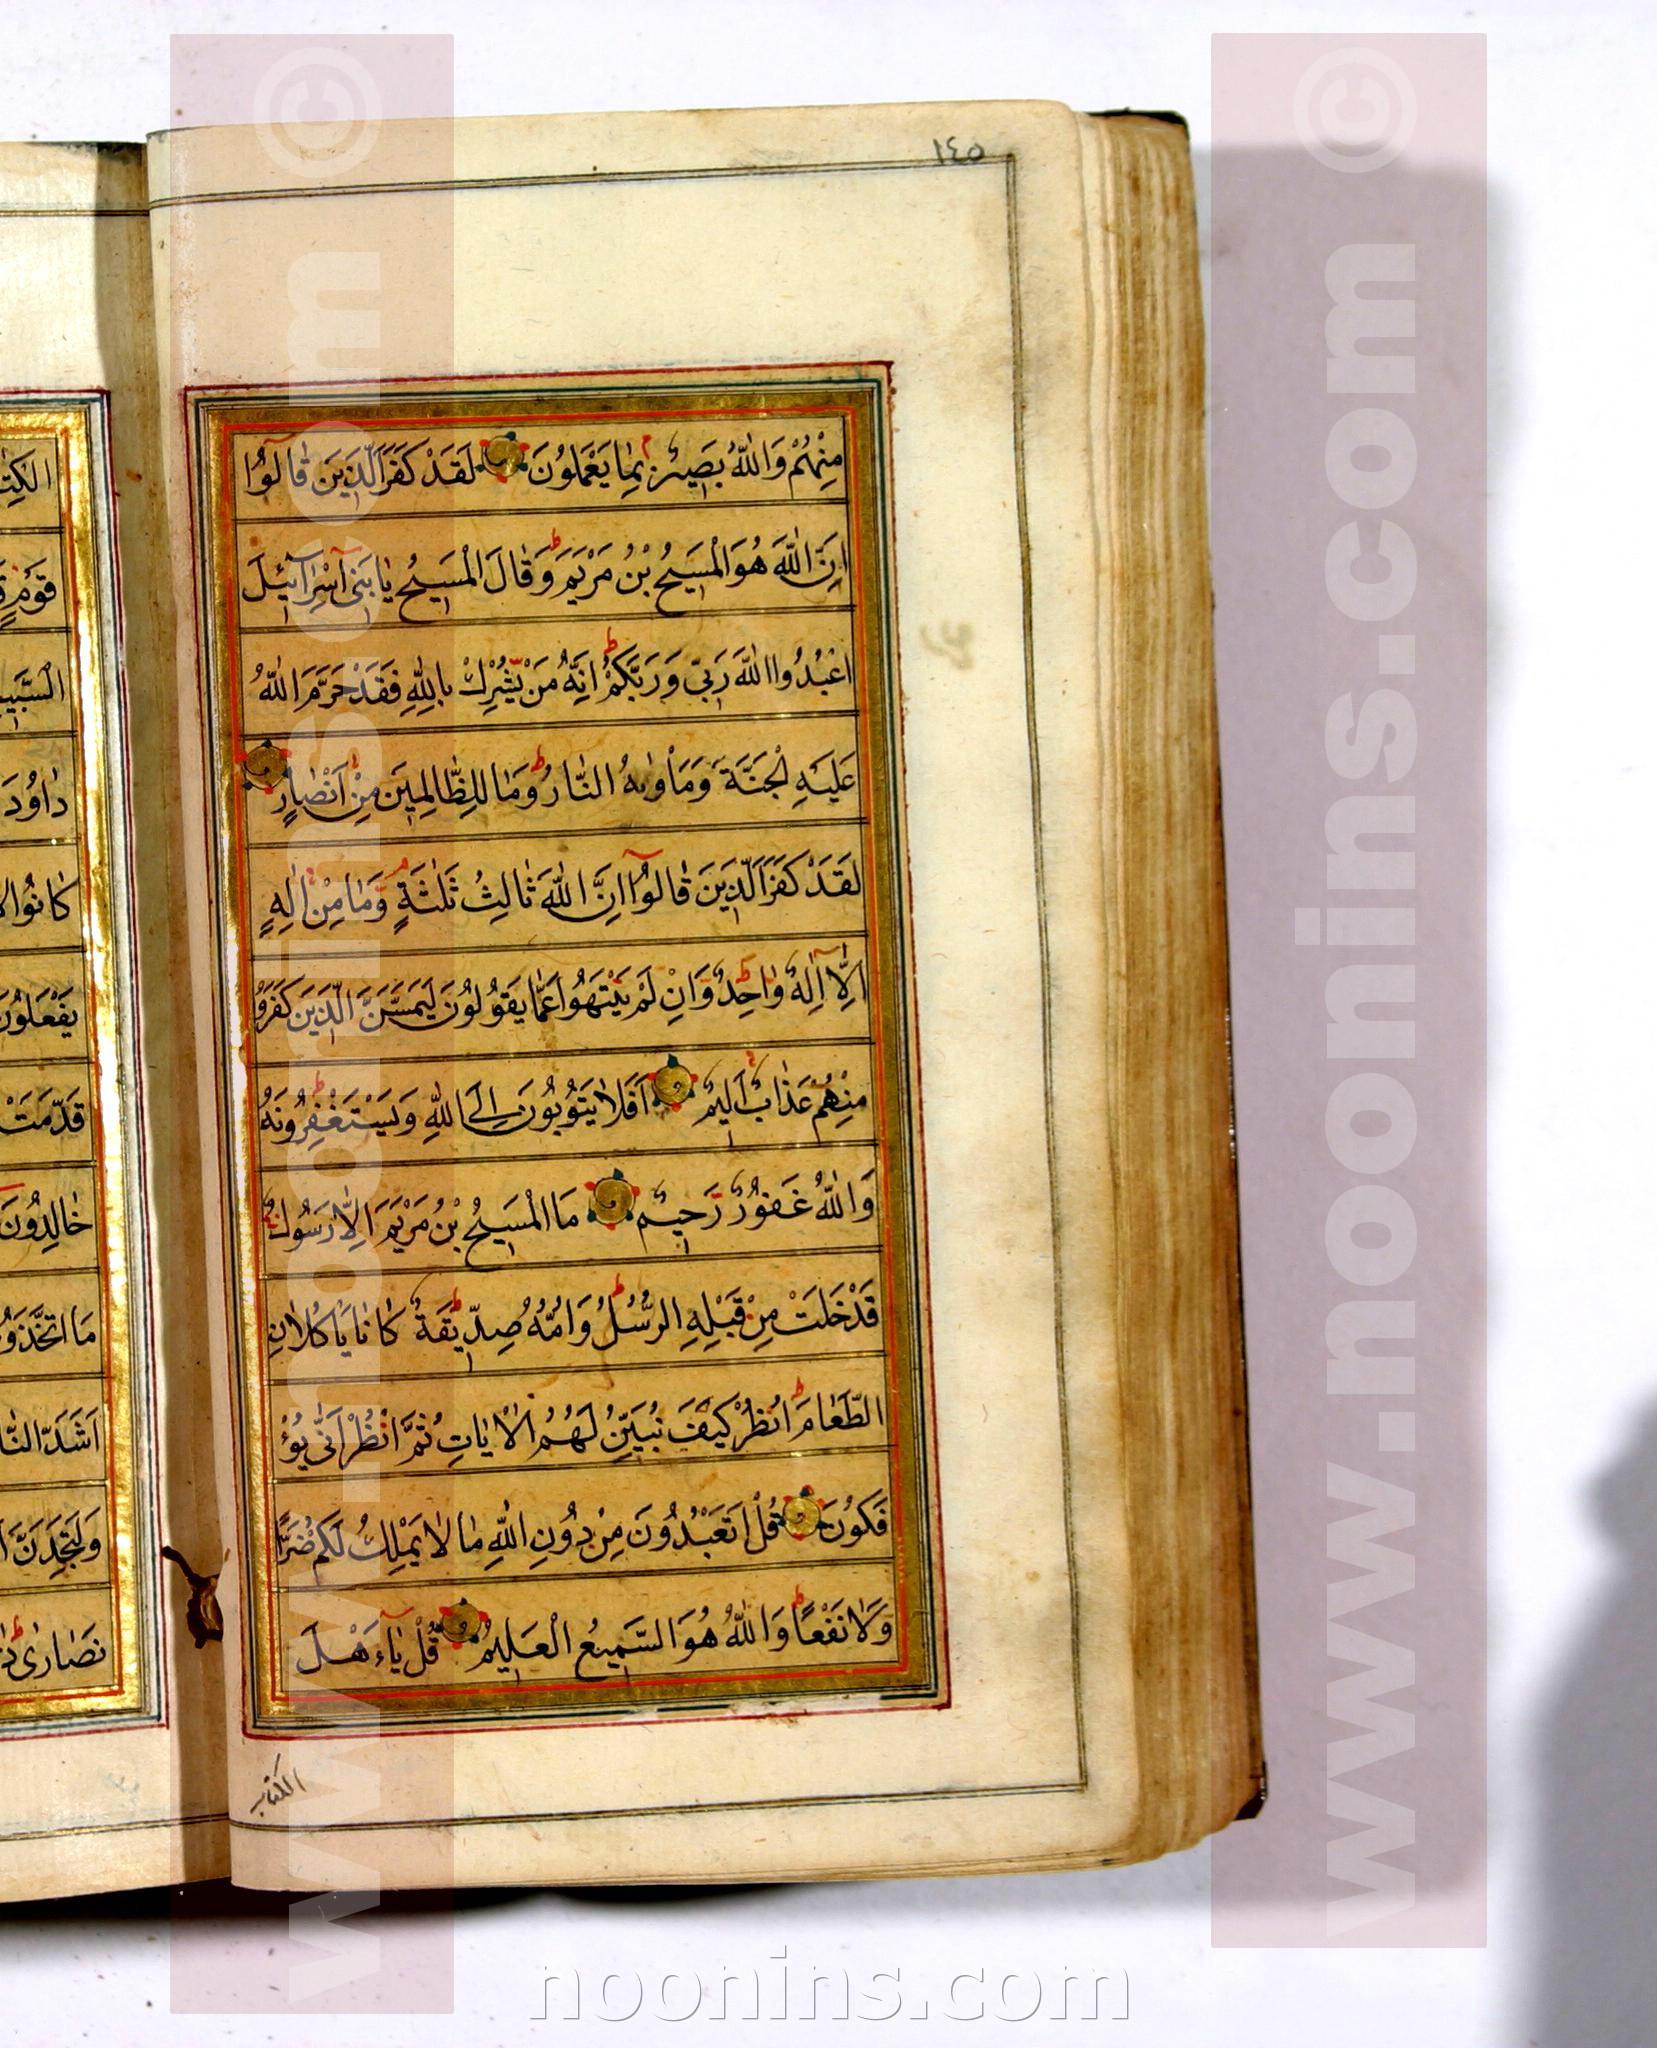 ١٤٥
مِنْهُمْ وَاللّٰهُ بَصِيرٌ بِمٰا يَعْمَلُونَ لَقَدْ كَفَرَ الَّذِينَ قٰالُوٓا
اِنَّ اللّٰهَ هُوَ الْمَسِيحُ بْنُ مَرْيَمَ وَقٰالَ الْمَسِيحُ يٰا بَنِىٓ اِسْرٰٓائِٔلَ
اعْبُدُوا اللّٰهَ رَبِّى وَرَبَّكُمْ اِنَّهُ مَنْ يُشْرِكْ بِاللّٰهِ فَقَدْ حَرَّمَ اللّٰهُ
عَلَيْهِ الْجَنَّةَ وَمَأْوٰيهُ النّٰارُ وَمٰا لِلظّٰالِمِينَ مِنْ اَنْصٰارٍ
لَقَدْ كَفَرَ الَّذِينَ قٰالُوٓا اِنَّ اللّٰهَ ثٰالِثُ ثَلٰثَةٍ وَمٰا مِنْ اِلٰهٍ
اِلّٰٓا اِلٰهٌ وٰاحِدٌ وَاِنْ لَمْ يَنْتَهُوا عَمّٰا يَقُولُونَ لَيَمَسَّنَّ الَّذِينَ كَفَرُوا
مِنْهُمْ عَذٰابٌ اَلِيمٌ اَفَلٰا يَتُوبُونَ اِلَى اللّٰهِ وَيَسْتَغْفِرُونَهُ
وَاللّٰهُ غَفُورٌ رَحِيمٌ مَا الْمَسِيحُ بْنُ مَرْيَمَ اِلّٰا رَسُولٌ
قَدْ خَلَتْ مِنْ قَبْلِهِ الرُّسُلُ وَاُمُّهُ صِدِّيقَةٌ كٰانٰا يَأْكُلٰانِ
الطَّعٰامَ انْظُرْ كَيْفَ نُبَيِّنُ لَهُمُ الْاٰيٰاتِ ثُمَّ انْظُرْ اَنّٰى يُؤْ
فَكُونَ قُلْ اَتَعْبُدُونَ مِنْ دُونِ اللّٰهِ مٰا لٰا يَمْلِكُ لَكُمْ ضَرًّا
وَلٰا نَفْعًا وَاللّٰهُ هُوَ السَّمِيعُ الْعَلِيمُ قُلْ يٰٓا اَهْلَ
الكتاب
قَوْمٍ
دٰاوُدَ
كٰانُوا
يَفْعَلُونَ
قَدَّمَتْ
خٰالِدُونَ
مَا اتَّخَذُو
اَشَدَّ النّٰا
وَلَتَجِدَنَّ
نَصٰارٰى
www.noonins.com ©
www.noonins.com ©
noonins.com